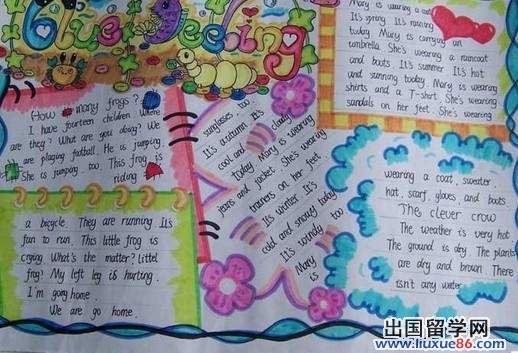 Blue Feeling
How many frogs?
I have fourteen children. Where
are they? What are you doing? We
are playing football. He is jumping.
She is jumping too. This frog is
riding
a bicycle. They are running It's
fun to run. This little frog is
crying. What's the matter? Littel
frog? My left leg is hurting.
I'm going home.
We are go home.
Mary is wearing a coat
It's spring It's raining
today. Mary is carrying an
umbrella. She's wearing a raincoat
and boots. It's summer It's hot
and sunning today. Mary is wearing
shirts and a T-shirt. She's wearing
sandals on her feet. She's wearing
sunglasses too
It's autumn. It's
cool and cloudy
today Mary is wearing
jeans and jacket. She's wearing
trainers on her feet.
It's winter. It's
cold and snowy today
It's windy too
Mary
is
wearing a coat, sweater,
hat, scarf, gloves, and boots
The clever crow
The weather is very hot
The ground is dry. The plants
are dry and brown. There
isn't any water.
出国留学网
www.liuxue86.com